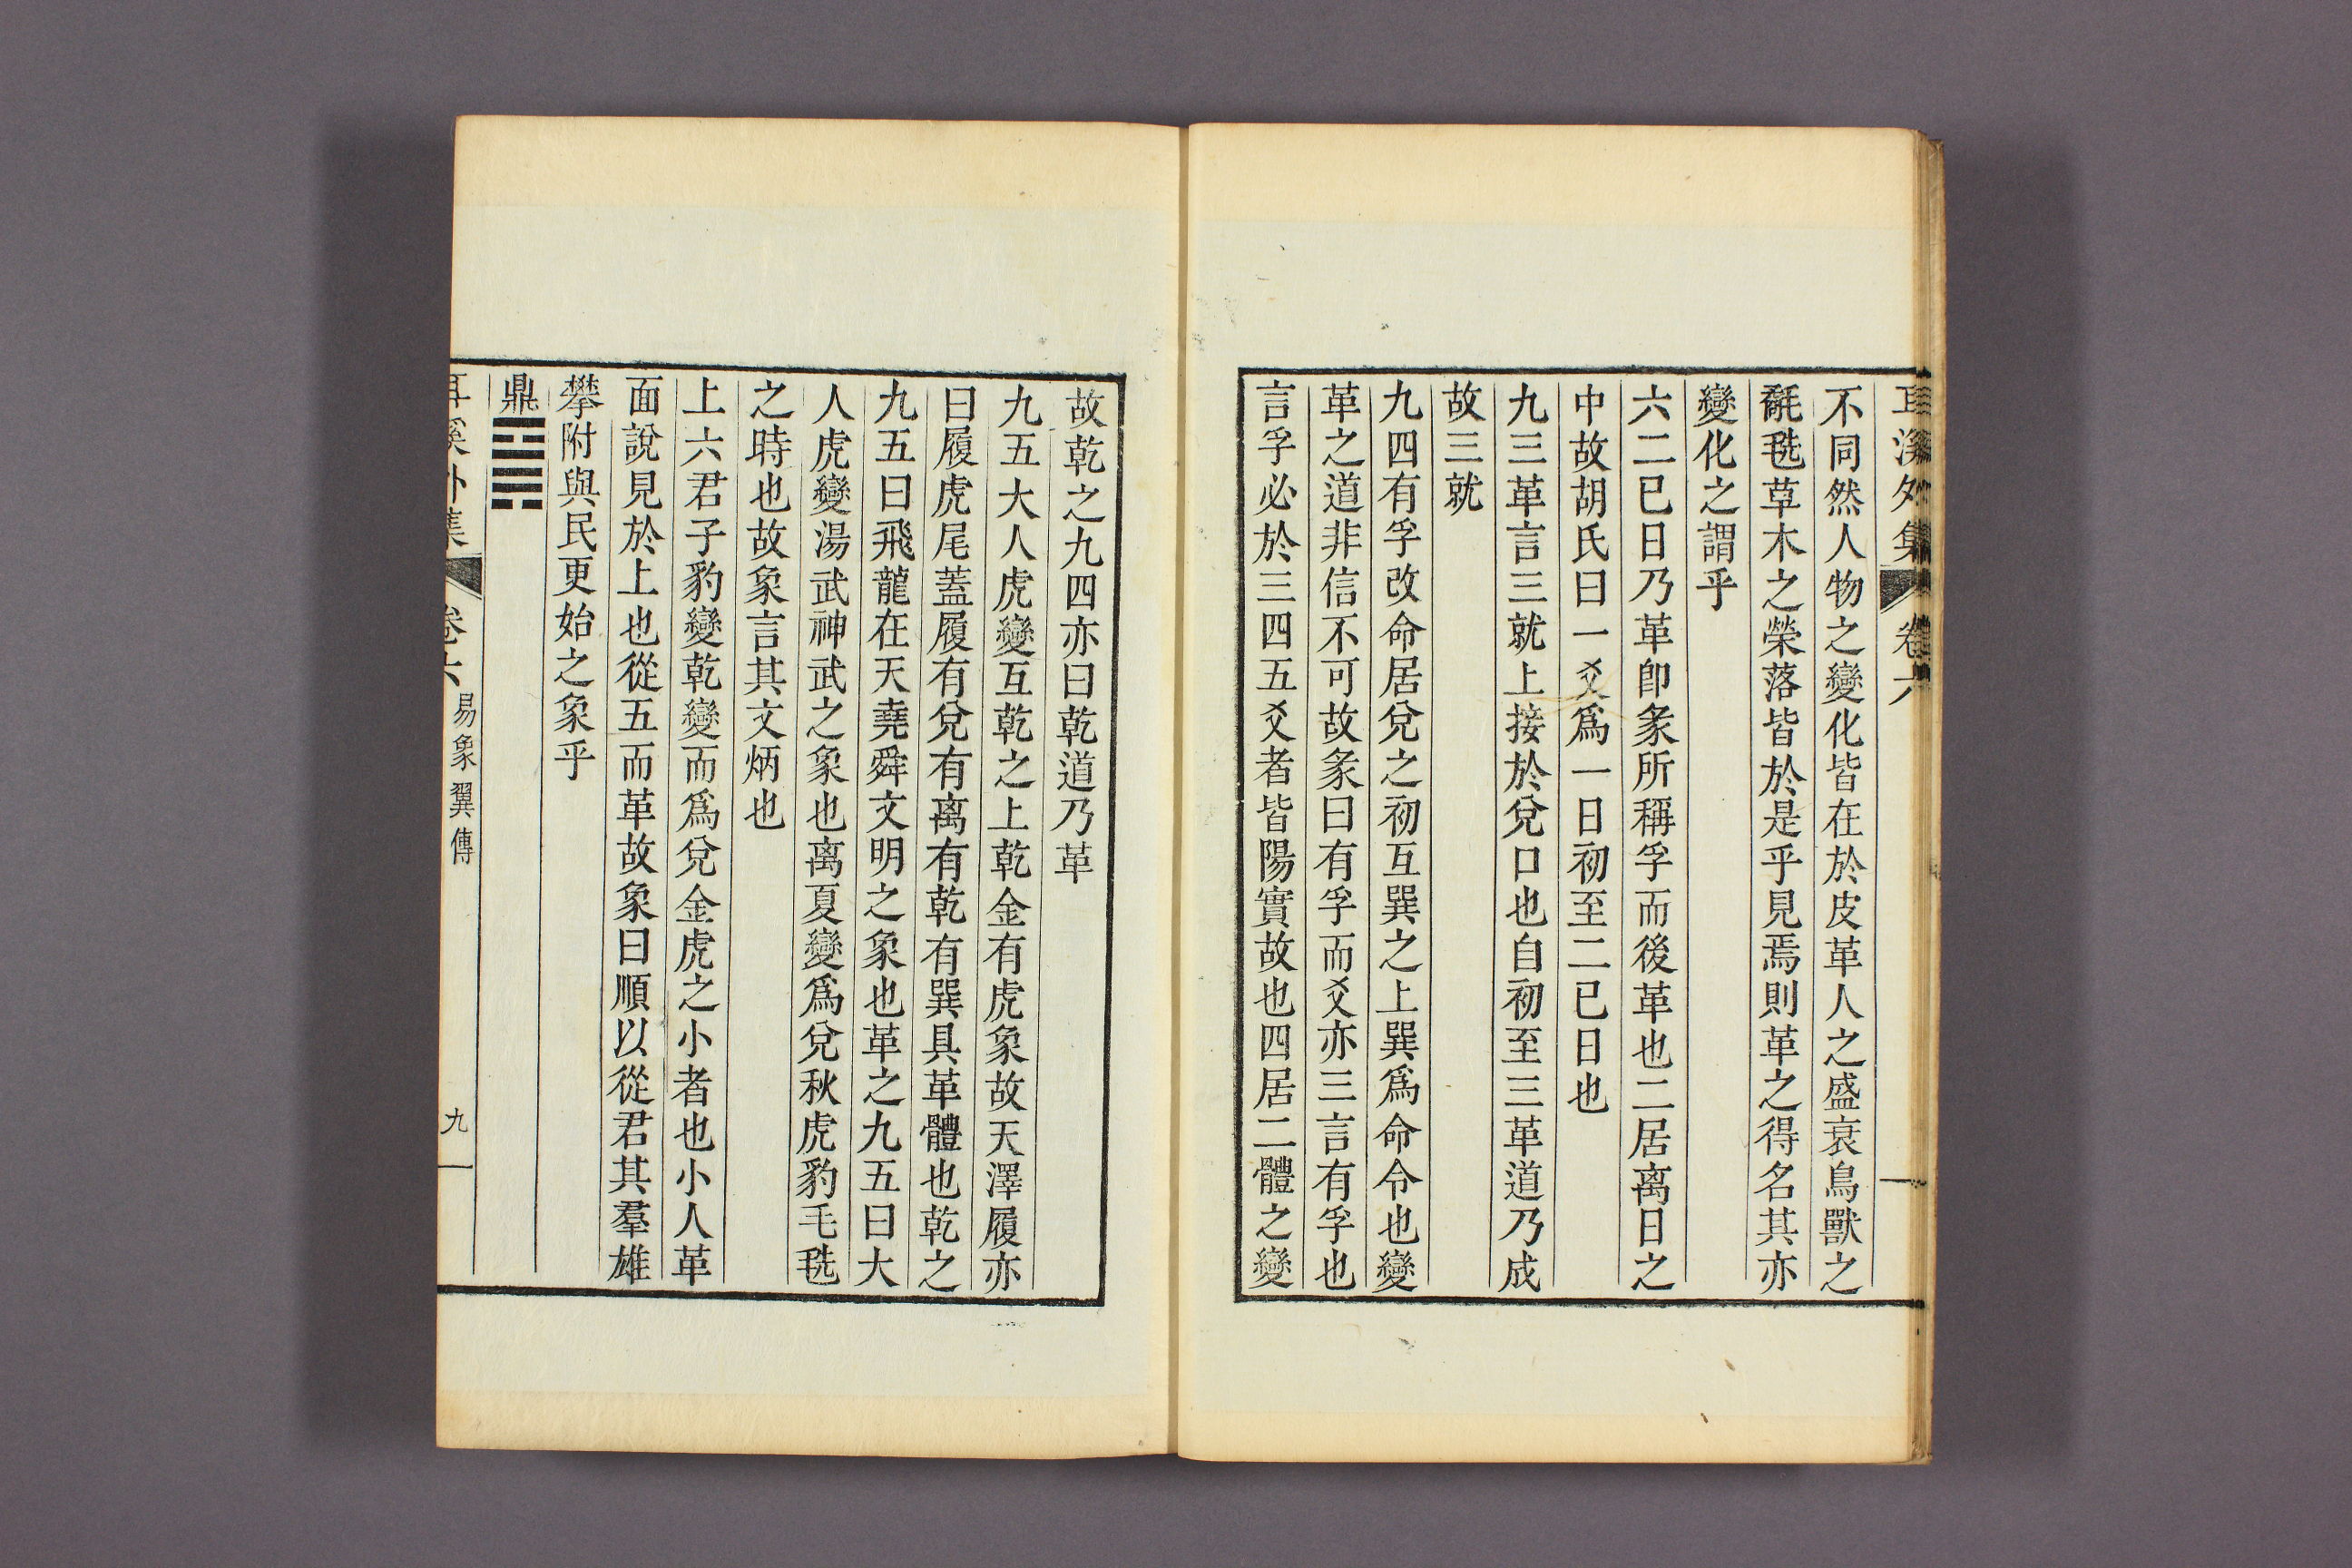 耳溪外集 卷六
不同然人物之變化皆在於皮革人之盛衰鳥獸之
氄毨草木之榮落皆於是乎見焉則革之得名其亦
變化之謂乎
六二已日乃革卽彖所稱孚而後革也二居离日之
中故胡氏曰一爻爲一日初至二已日也
九三革言三就上接於兌口也自初至三革道乃成
故三就
九四有孚改命居兌之初互巽之上巽爲命令也變
革之道非信不可故彖曰有孚而爻亦三言有孚也
言孚必於三四五爻者皆陽實故也四居二體之變
故乾之九四亦曰乾道乃革
九五大人虎變互乾之上乾金有虎象故天澤履亦
曰履虎尾蓋履有兌有离有乾有巽具革體也乾之
九五曰飛龍在天堯舜文明之象也革之九五曰大
人虎變湯武神武之象也离夏變爲兌秋虎豹毛毨
之時也故象言其文炳也
上六君子豹變乾變而爲兌金虎之小者也小人革
面說見於上也從五而革故象曰順以從君其羣雄
攀附與民更始之象乎
鼎䷱
耳溪外集 卷六 易象翼傳 九